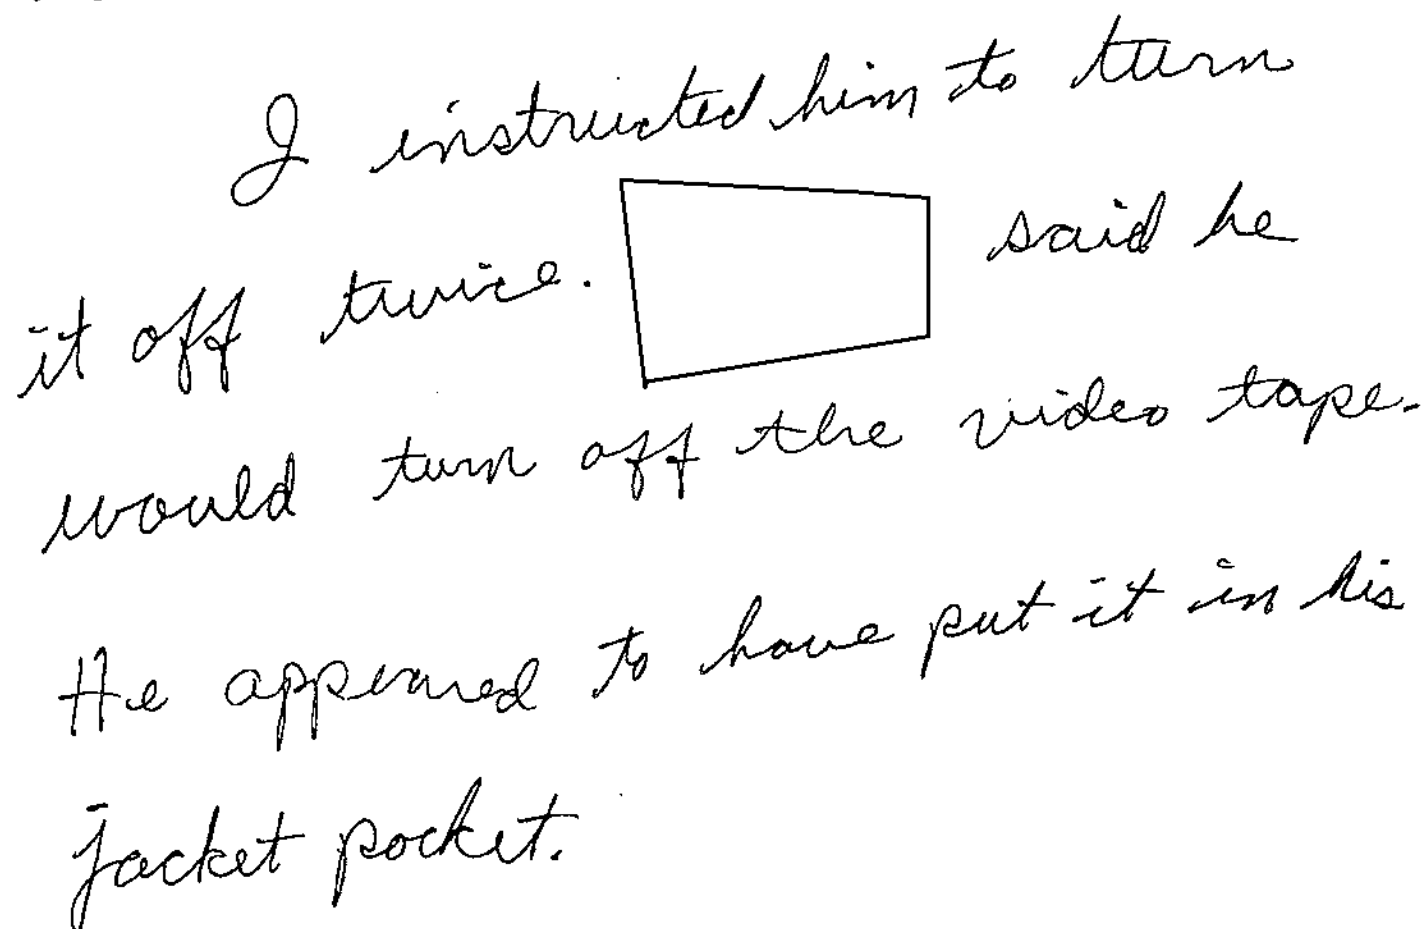 I instructed him to turn
it off twice. said he
would turn off the video tape.
He appeared to have put it in his
jacket pocket.